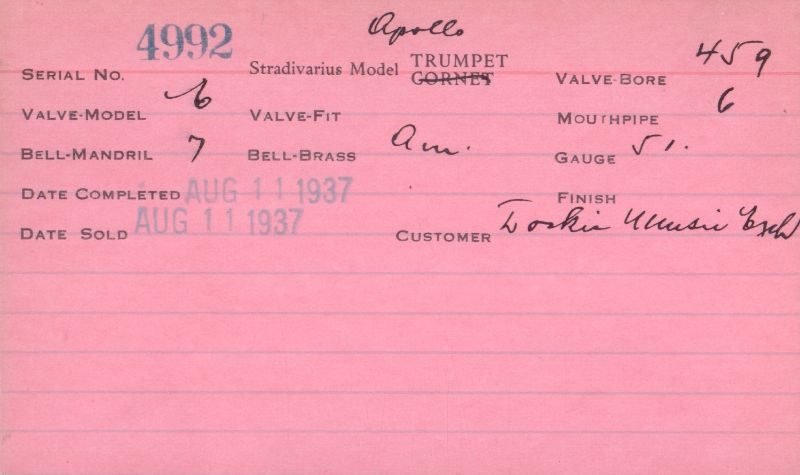 Apollo
SERIAL No. 4992 Stradivarius Model TRUMPET CORNET VALVE-BORE 459
VALVE-MODEL 6 VALVE-FIT MOUTHPIPE 6
BELL-MANDRIL 7 BELL-BRASS Am. GAUGE 51.
DATE COMPLETED AUG 11 1937 FINISH
DATE SOLD AUG 11 1937 CUSTOMER Music Exch